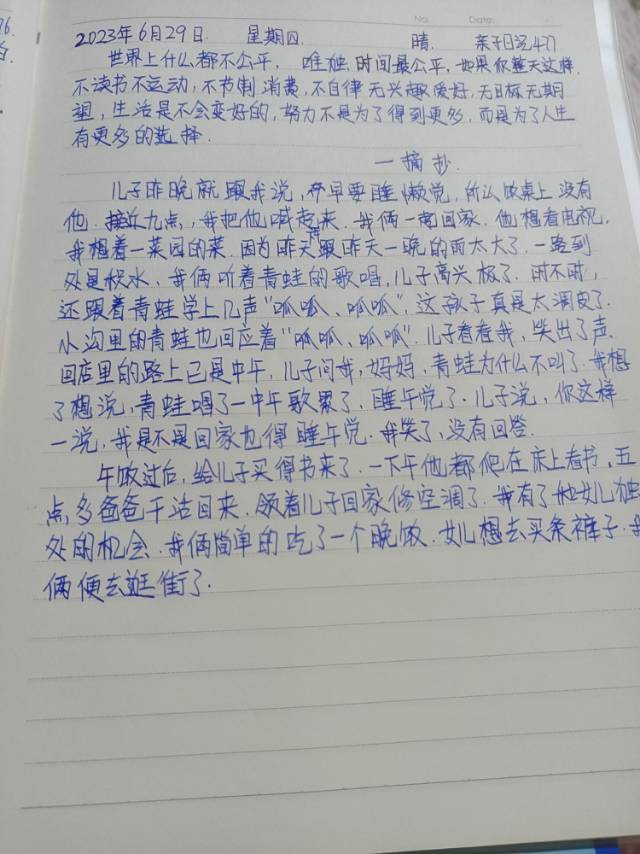 No.
Date.
96.
2023年6月29日 星期四 晴. 亲子日记477
世界上什么都不公平, 唯独时间最公平, 如果你整天这样,
不读书不运动, 不节制消费, 不自律无兴趣爱好, 无目标无期
望, 生活是不会变好的, 努力不是为了得到更多, 而是为了人生
有更多的选择.
一摘抄.
儿子昨晚就跟我说, 早要睡懒觉, 所以饭桌上没有
他. 接近九点, 我把他喊起来. 我俩一起回家. 他想看电视,
我想着一菜园的菜. 因为昨天跟昨天一晚的雨太大了. 一路到
处是积水, 我俩听着青蛙的歌唱, 儿子高兴极了. 时不时,
还跟着青蛙学上几声"呱呱、呱呱", 这孩子真是太调皮了.
小沟里的青蛙也回应着"呱呱、呱呱". 儿子看看我, 笑出了声.
回店里的路上已是中午, 儿子问我, 妈妈, 青蛙为什么不叫了. 我想
了想说, 青蛙唱了一中午歌累了, 睡午觉了. 儿子说, 你这样
一说, 我是不是回家也得睡午觉. 我笑了, 没有回答.
午饭过后, 给儿子买得书来了. 一下午他都爬在床上看书, 五
点多爸爸干活回来, 领着儿子回家修空调了. 我有了和女儿独
处的机会. 我俩简单的吃了一个晚饭. 女儿想去买条裤子.
俩便去逛街了.